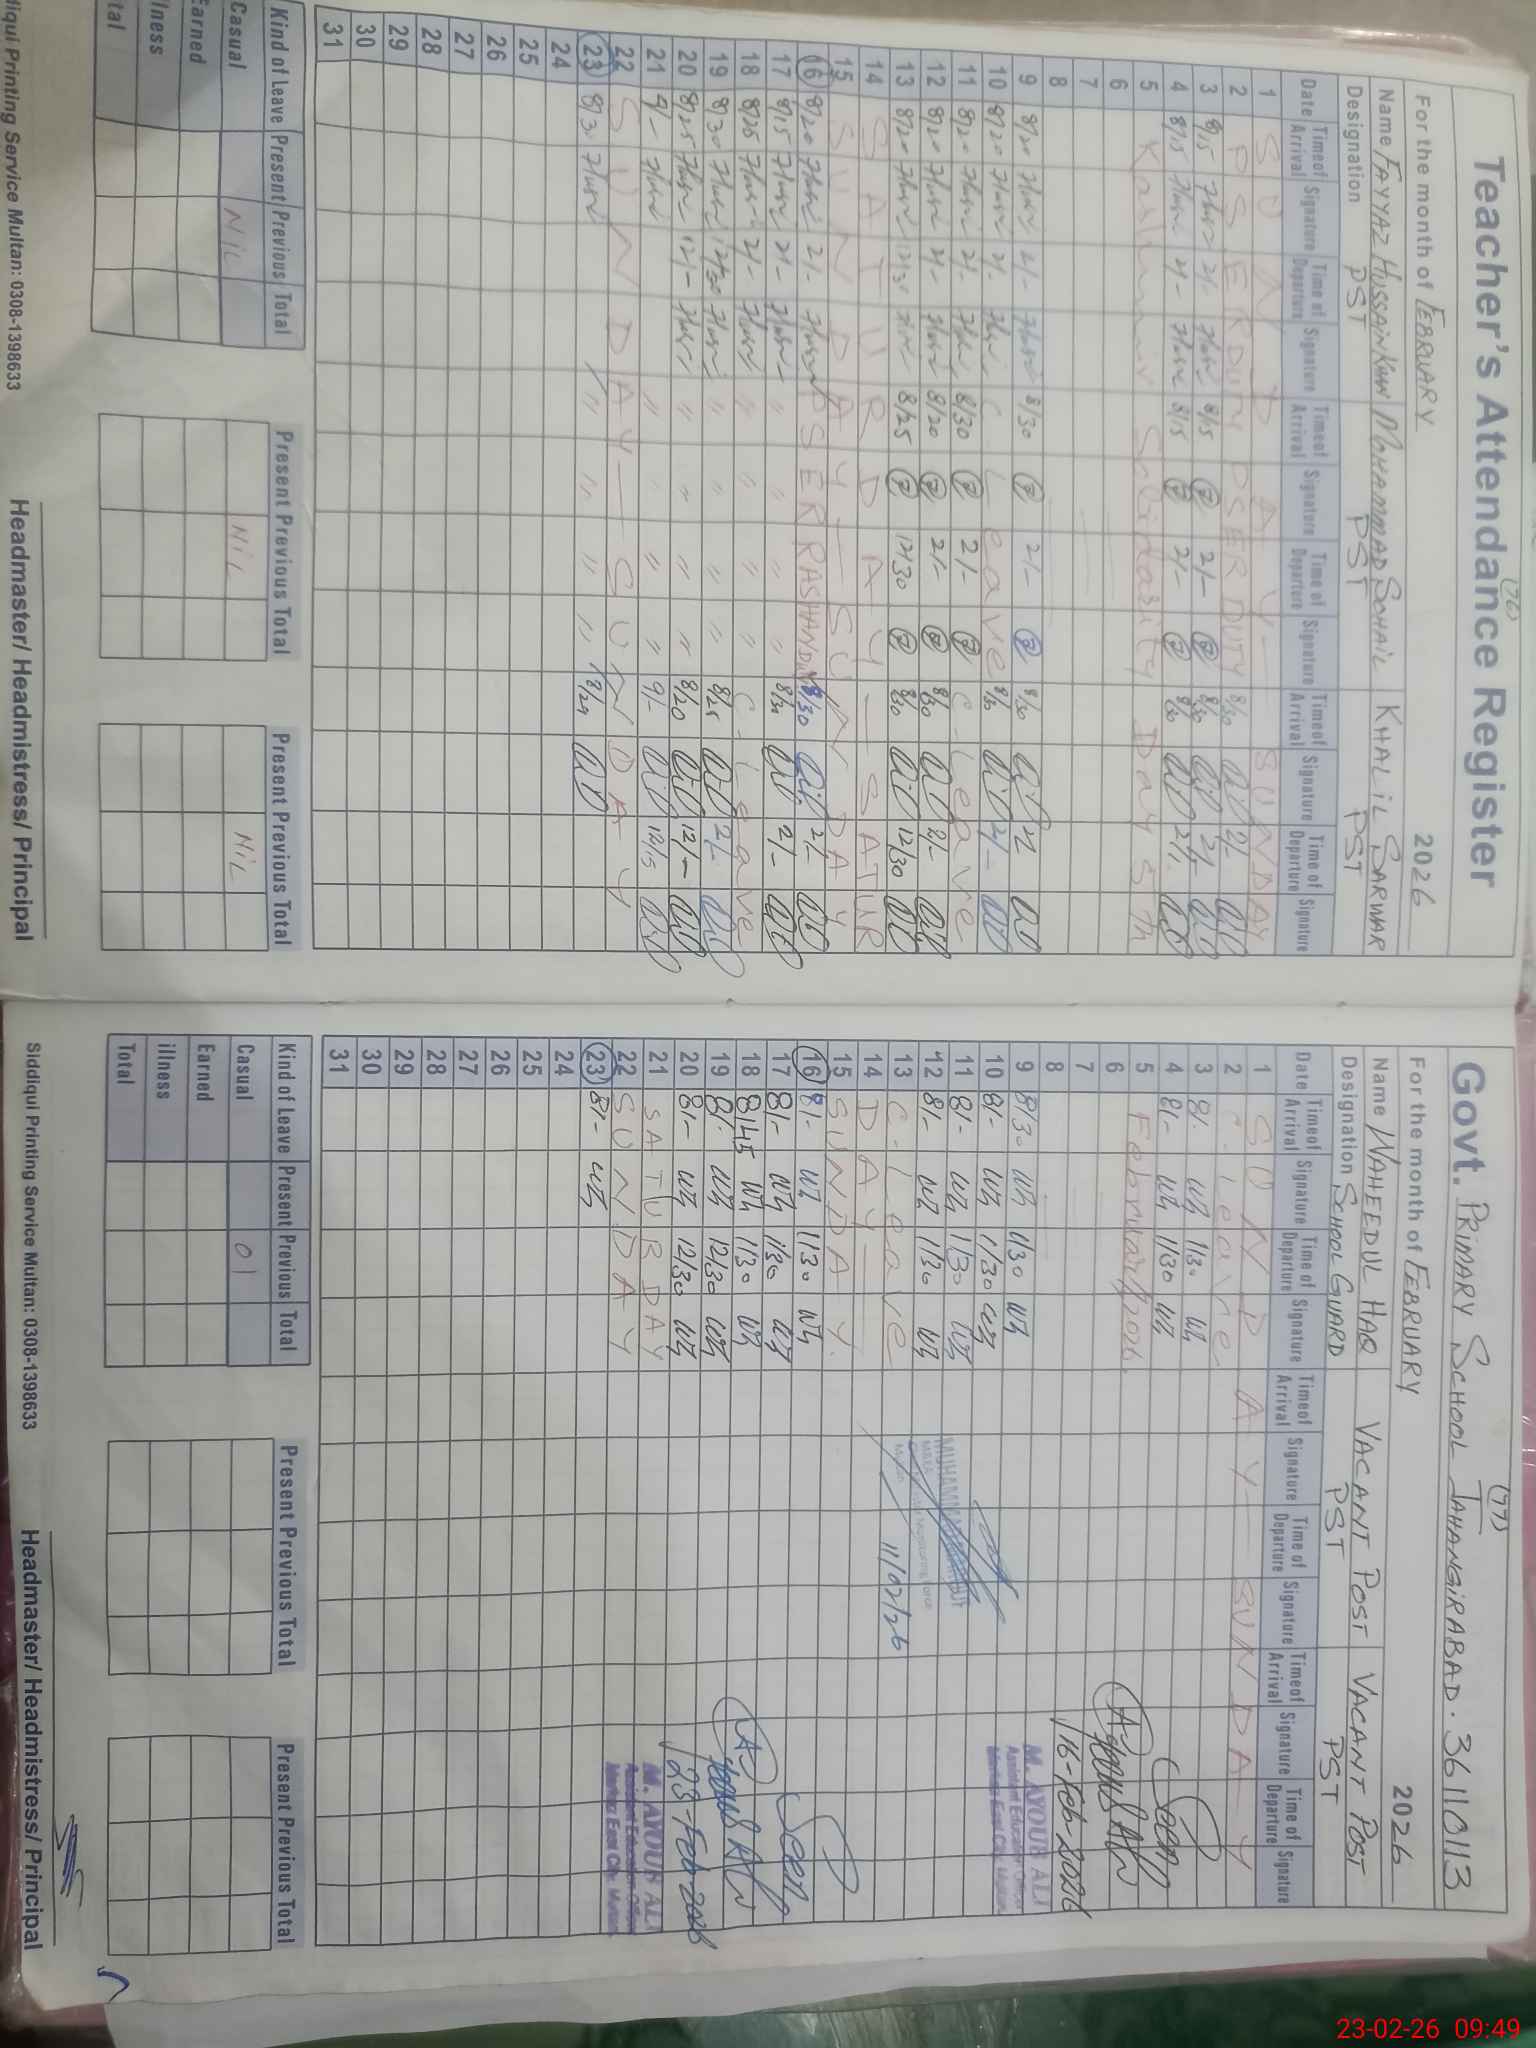 Teacher's Attendance Register
(76)
For the month of FEBRUARY 2026
Name FAYYAZ HUSSAIN KHAN MOHAMMAD SOHAIL KHALIL SARWAR
Designation PST PST PST
Date Time of Arrival Signature Time of Departure Signature Time of Arrival Signature Time of Departure Signature Time of Arrival Signature Time of Departure Signature
1 SUNDAY — SUNDAY
2 PSER DUTY PSER DUTY 8/30 2/-
3 8/15 2/- 8/15 2/- 8/30 2/-
4 8/15 2/- 8/15 2/- 8/30 2/-
5 Kashmir Solidarity Day 5th
6
7
8
9 8/20 2/- 8/30 2/- 8/30 2
10 8/20 2/- C Leave 8/30 2/-
11 8/20 2/- 8/30 2/- C-Leave
12 8/20 2/- 8/20 2/- 8/30 2/-
13 8/20 12/30 8/25 12/30 8/30 12/30
14 SATURDAY — SATUR
15 SUNDAY — SUNDAY
16 8/20 2/- PSER RASHAN DUTY 8/30 2/-
17 8/15 2/- " " " " 8/30 2/-
18 8/25 2/- " " " " C-Leave
19 8/30 12/30 " " " " 8/25 2/-
20 8/25 12/- " " " " 8/20 12/-
21 9/- " " " " 9/- 12/15
22 SUNDAY — SUNDAY
23 8/30 " " " " 8/29
24
25
26
27
28
29
30
31
Kind of Leave Present Previous Total Present Previous Total Present Previous Total
Casual NIL NIL NIL
Earned
illness
Total
Siddiqui Printing Service Multan: 0308-1398633 Headmaster/ Headmistress/ Principal
Govt. PRIMARY SCHOOL JAHANGIRABAD. 36110113
(77)
For the month of FEBRUARY 2026
Name WAHEEDUL HAQ VACANT POST VACANT POST
Designation SCHOOL GUARD PST PST
Date Time of Arrival Signature Time of Departure Signature Time of Arrival Signature Time of Departure Signature Time of Arrival Signature Time of Departure Signature
1 SUNDAY — SUNDAY
2 C. Leave
3 8/- 1/30
4 8/- 1/30
5 February/2026.
6
7
8
9 8/30 1/30
10 8/- 1/30
11 8/- 1/30
12 8/- 1/30
13 C-Leave
14 DAY —
15 SUNDAY.
16 8/- 1/30
17 8/- 1/30
18 8/45 1/30
19 8/- 12/30
20 8/- 12/30
21 SATURDAY
22 SUNDAY
23 8/-
24
25
26
27
28
29
30
31
11/02/26
Seen
16-Feb-2026
M. AYOUB ALI
Assistant Education Officer
Markaz East City, Multan
Seen
23-Feb-2026
M. AYOUB ALI
Assistant Education Officer
Markaz East City, Multan
Kind of Leave Present Previous Total Present Previous Total Present Previous Total
Casual 01
Earned
illness
Total
Siddiqui Printing Service Multan: 0308-1398633 Headmaster/ Headmistress/ Principal
23-02-26 09:49